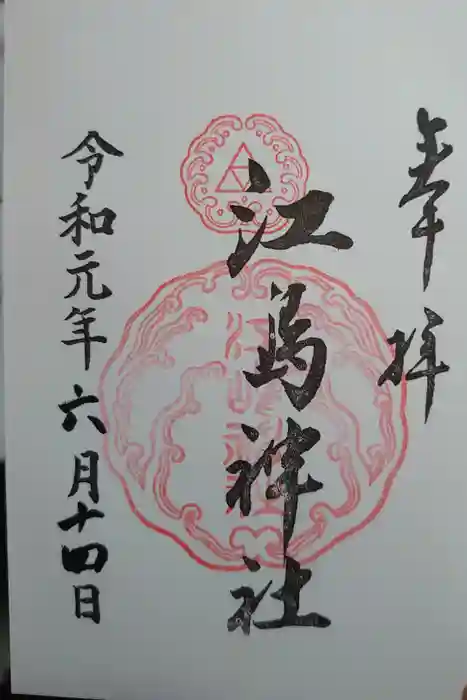 奉拝
江島神社
令和元年六月十四日